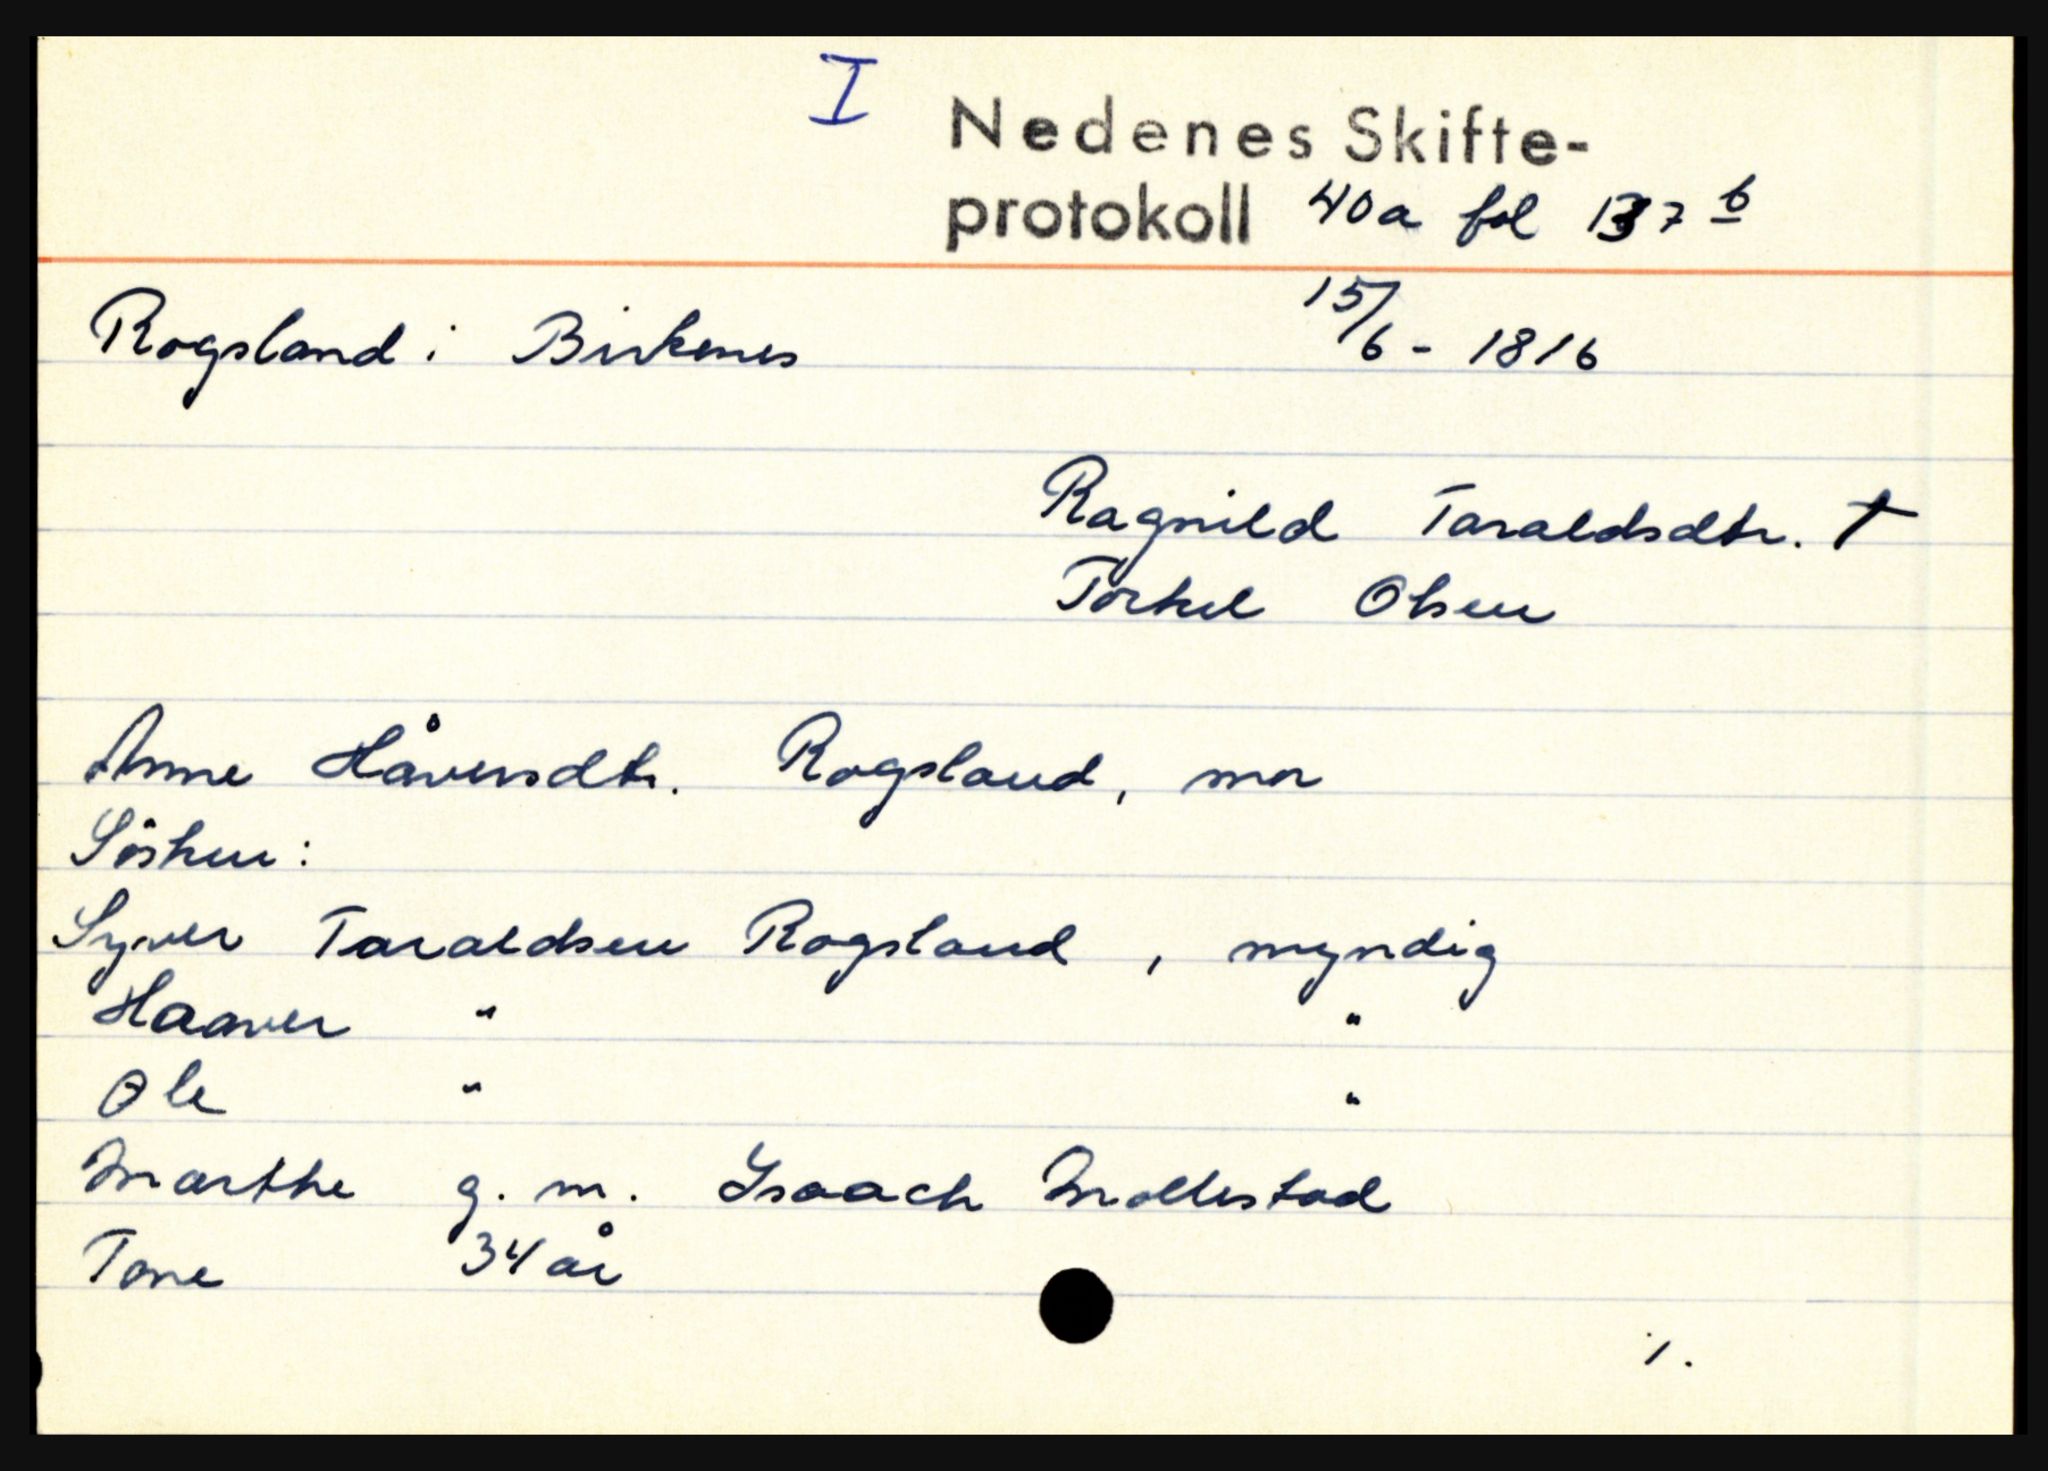 I
Nedenes Skifte-
protokoll 40a fol 137 b
Rogsland i Birkenes 15/6 - 1816
Ragnild Taraldsdtr. †
Torkel Olsen
Anne Håversdtr. Rogsland, mor
Søsken:
Syver Taraldsen Rogsland, myndig
Haaver " "
Ole " "
Marthe g. m. Isaach Mollestad
Tone 34 år
./.